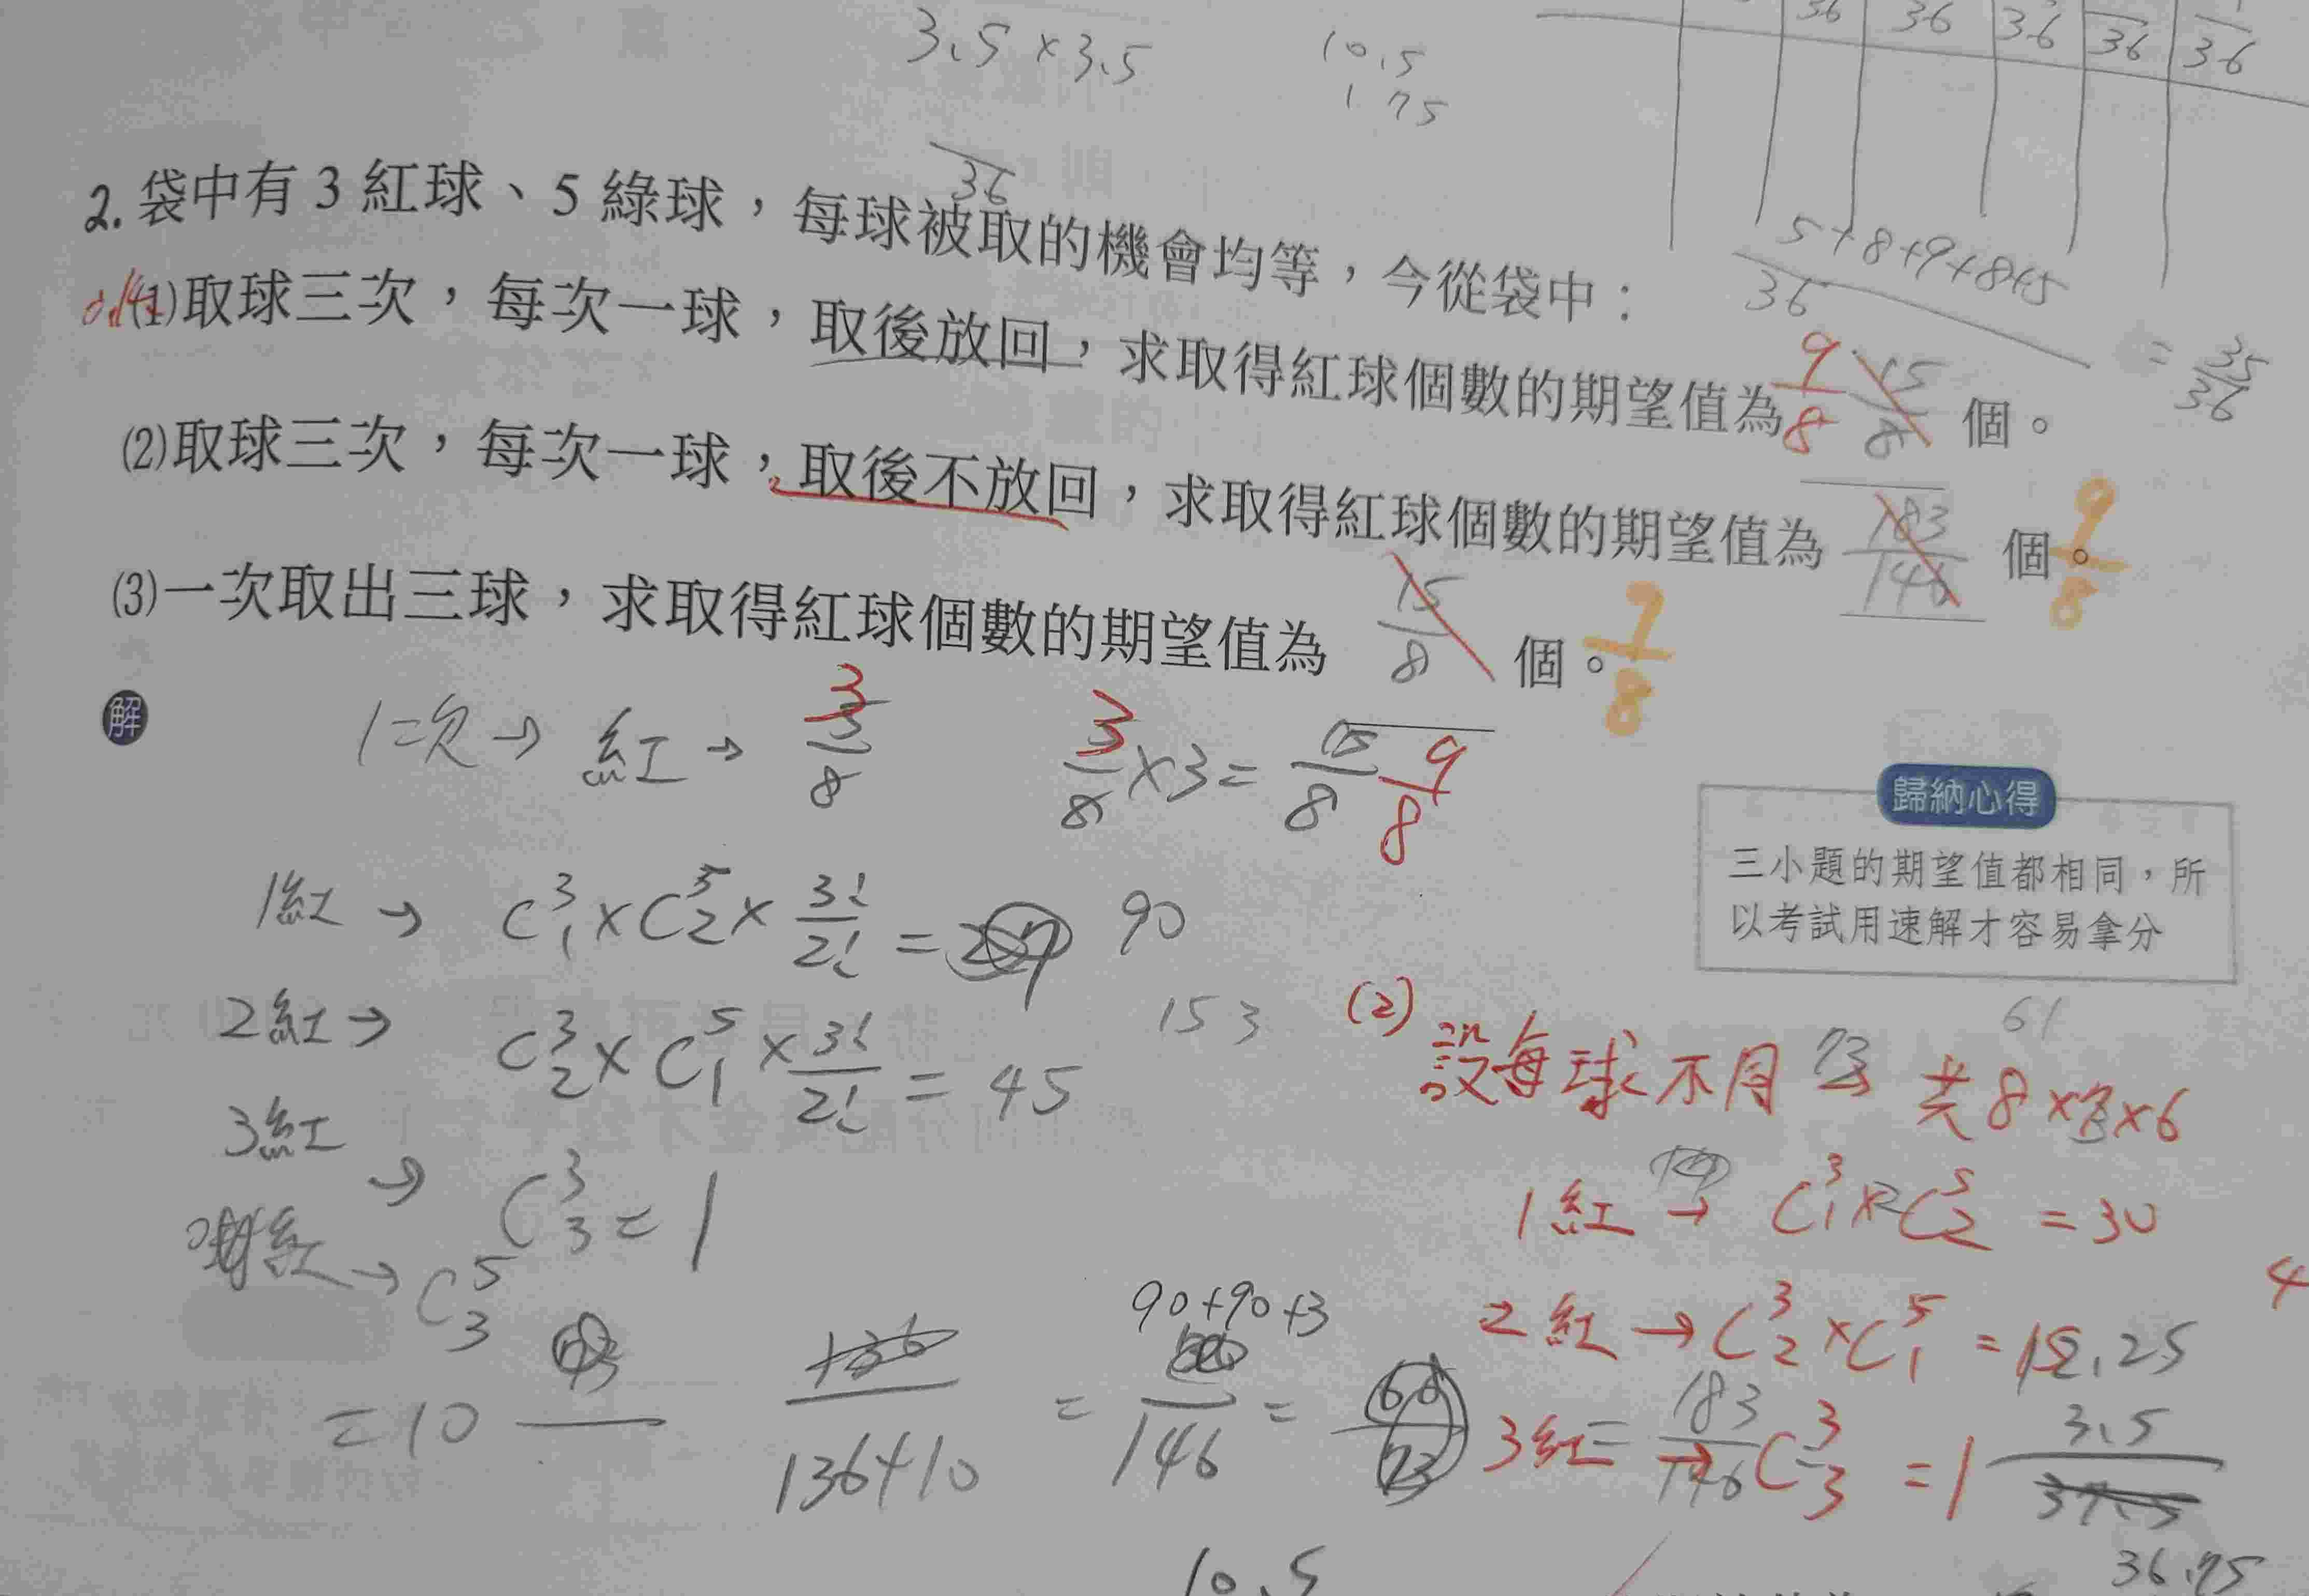 3.5 × 3.5
10.5
1.75
36 36 36 36 36
36
2. 袋中有 3 紅球、5 綠球，每球被取的機會均等，今從袋中：
5+8+9+8+5
36
= 35/36
(1)取球三次，每次一球，取後放回，求取得紅球個數的期望值為 9/8 15/8 個。
(2)取球三次，每次一球，取後不放回，求取得紅球個數的期望值為 183/146 個。 9/8
(3)一次取出三球，求取得紅球個數的期望值為 15/8 個。 9/8
解
1次 → 紅 → 3/8
3/8 × 3 = 15/8 9/8
歸納心得
三小題的期望值都相同，所
以考試用速解才容易拿分
1紅 → C³₁ × C⁵₂ × 3!/2! = 90
153
2紅 → C³₂ × C⁵₁ × 3!/2! = 45
3紅 → C³₃ = 1
→ C⁵₃
= 10
136+10
90+90+3
= /146 =
= 183/146
(2) 設每球不同 共 8 × × 6
61
1紅 → C³₁ × C⁵₂ = 30
4
2紅 → C³₂ × C⁵₁ =
3紅 → C³₃ = 1
3.5
36.75
10.5